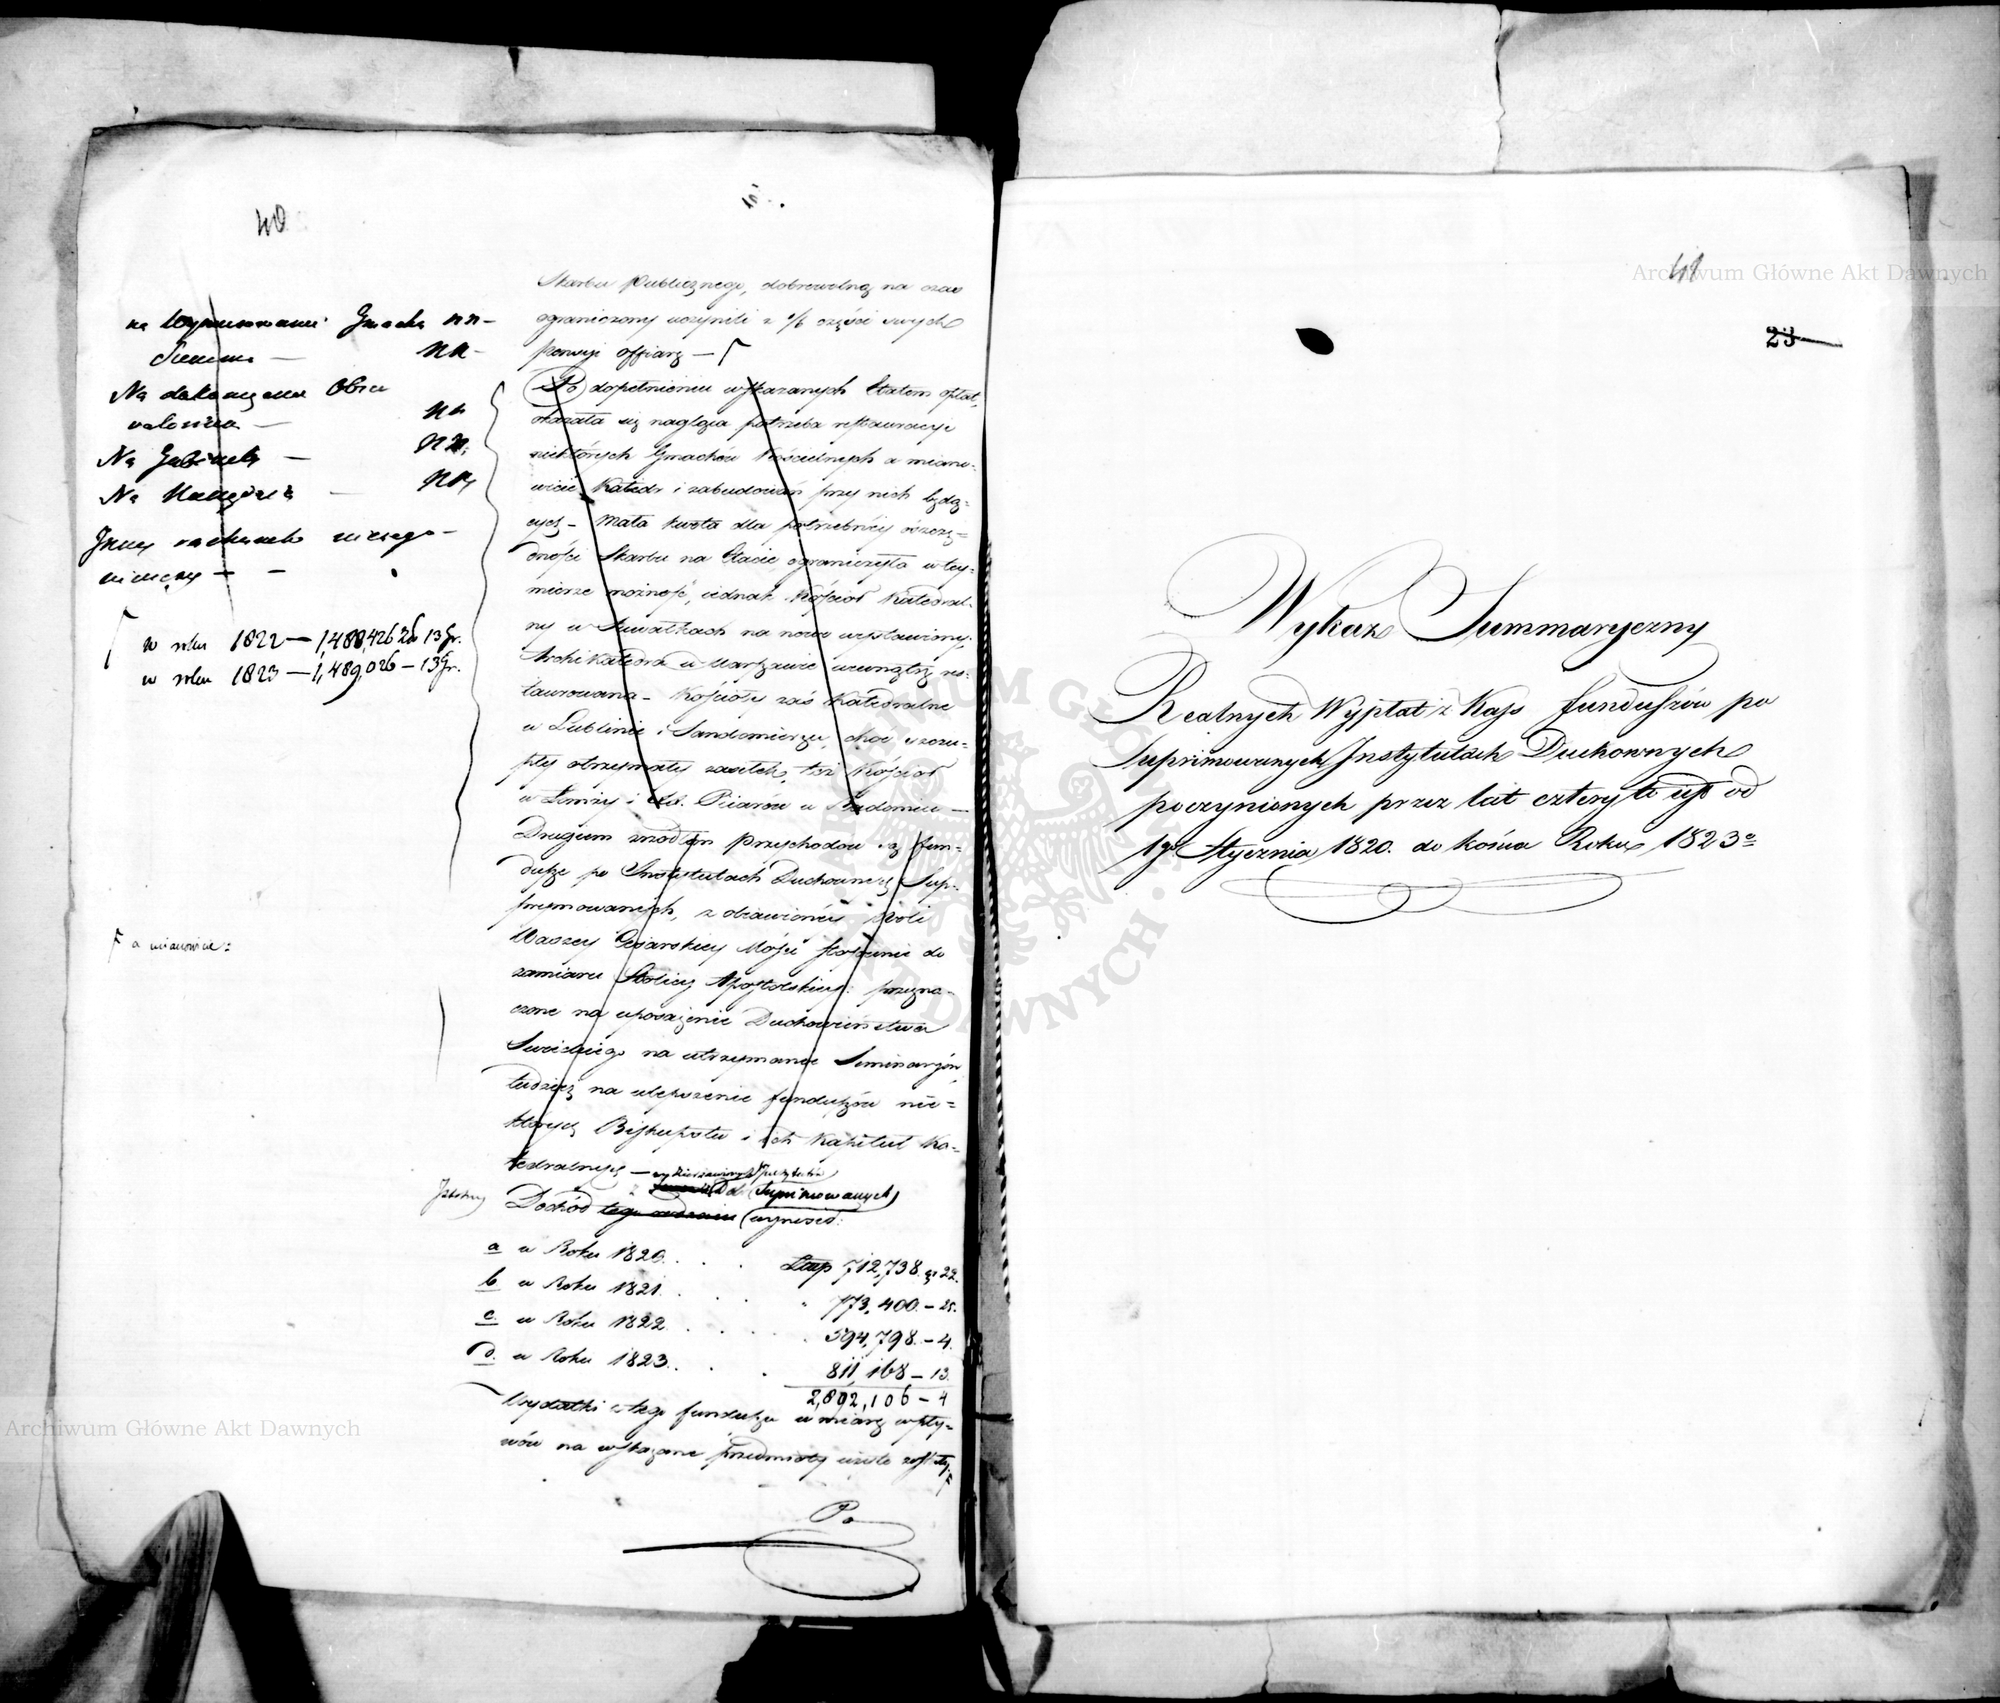 40
na wymurowanie Gmachu nn-
nn-
Na dokończenie Obser
nn
Na Gabinety — nn.
Na
w roku 1822 — 1,488,426 zł 13 gr.
w roku 1823 — 1,489,026 — 13 gr.
a mianowicie:
Skarbu Publicznego, dobrowolną na czas
ograniczony uczynili z części swych
pensyi offiarę —
Po dopełnieniu wskazanych Etatem opłat,
okazała się nagląca potrzeba restauracyi
niektórych Gmachów Kościelnych a miano-
wicie Katedr i zabudowań przy nich będą-
cych — Mała kwota dla potrzebnéy oszczę-
dności Skarbu na Etacie ograniczyła w téy
mierze możność, jednak Kościoł Katedral-
ny w Suwałkach na nowo wystawiony,
Archikatedra w Warszawie wewnątrz res-
taurowana — Kościoły zaś Katedralne
w Lublinie i Sandomierzu, choć szczu-
pły otrzymały zasiłek, też Kościoł
w Łomży i Piiarów w Radomiu —
Drugiem źrodłem Przychodów są fun-
dusze po Instytutach Duchownych Sup-
primowanych, z obiawionéy woli
Waszéy Cesarskiéy Mości stosownie do
zamiaru Stolicy Apostolskiéy przezna-
czone na uposażenie Duchowieństwa
Swieckiego na utrzymanie Seminaryów
tudzież na ulepszenie funduszów nie-
których Biskupstw i ich Kapituł Ka-
tedralnych —
z Dóbr Suprimowanych
Dochód tego rodzaiu wynosił:
a w Roku 1820 . . . Złp 712,738 gr 22.
b w Roku 1821 . . . " 773,400. — 25.
c. w Roku 1822 . . . . 594,798. — 4.
d. w Roku 1823 . . . 811,168 — 13.
2,892,106 — 4
Wydatki z tego funduszu w miarę wpły-
wów na wskazane przedmioty użyte zostały
Po
41
23
Wykaz Summaryczny
Realnych Wypłat z Kass funduszów po
Suprimowanych Instytutach Duchownych
poczynionych przez lat cztery to iest od
1go Stycznia 1820. do końca Roku 1823o
Archiwum Główne Akt Dawnych
Archiwum Główne Akt Dawnych
ARCHIWUM GŁÓWNE AKT DAWNYCH